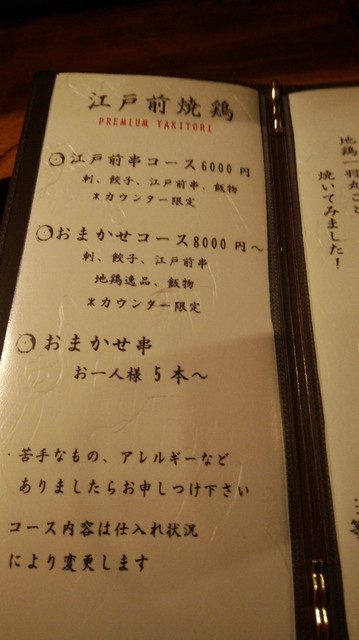 江戸前焼鶏
PREMIUM YAKITORI
○江戸前串コース6000円
刺、餃子、江戸前串、飯物
※カウンター限定
○おまかせコース8000円～
刺、餃子、江戸前串
地鶏逸品、飯物
※カウンター限定
○おまかせ串
お一人様 5本～
・苦手なもの、アレルギーなど
ありましたらお申しつけ下さい
コース内容は仕入れ状況
により変更します
地鶏一羽丸ごと
焼いてみました！